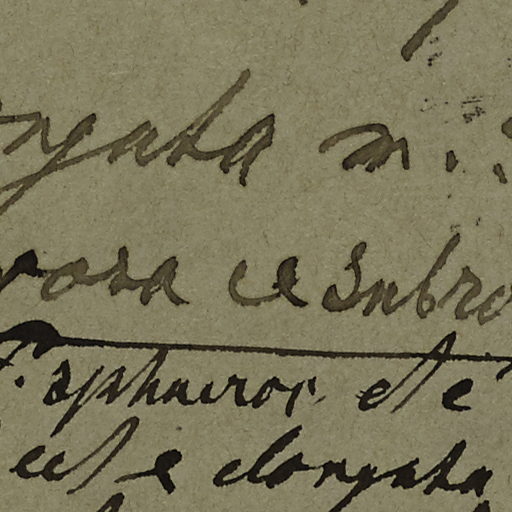 ngata n.
rosa et subro
F. sphaeror et e
et e elongata